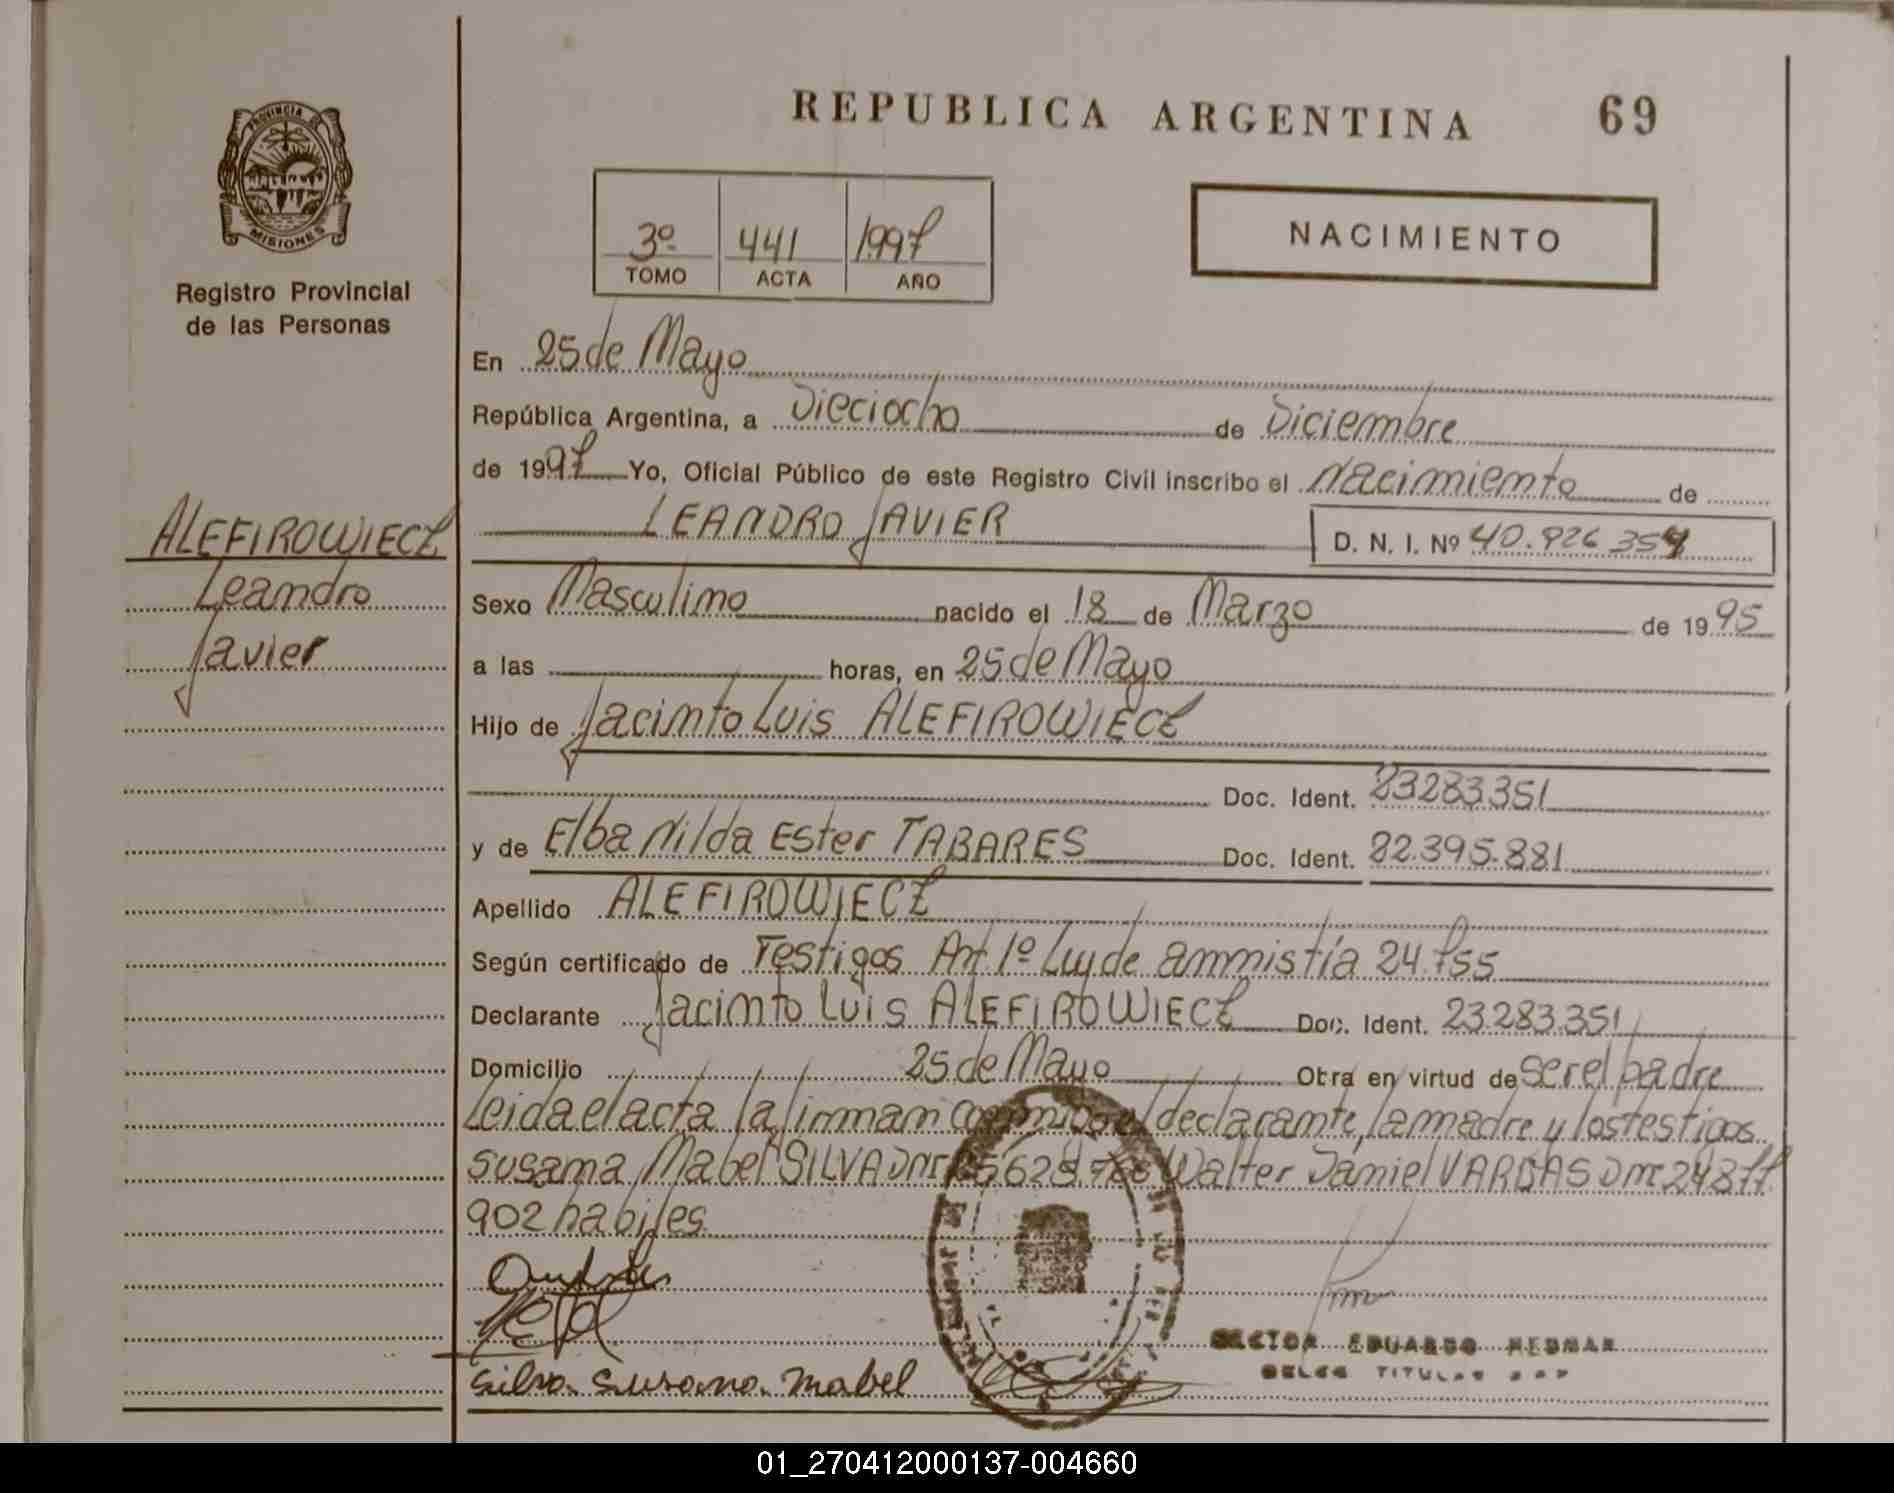 REPUBLICA ARGENTINA 69
PROVINCIA DE MISIONES
Registro Provincial
de las Personas
3º 441 1997
TOMO ACTA AÑO
NACIMIENTO
En 25 de Mayo
República Argentina, a Dieciocho de Diciembre
de 1997 Yo, Oficial Público de este Registro Civil inscribo el Nacimiento de
LEANDRO JAVIER D. N. I. Nº 40.926 354
ALEFIROWIECZ
Leandro
Javier
Sexo Masculino nacido el 18 de Marzo de 1995
a las horas, en 25 de Mayo
Hijo de Jacinto Luis ALEFIROWIECZ
Doc. Ident. 23283351
y de Elba Nilda Ester TABARES Doc. Ident. 22.395.881
Apellido ALEFIROWIECZ
Según certificado de Testigos Art 1º Ley de amnistía 24.755
Declarante Jacinto Luis ALEFIROWIECZ Doc. Ident. 23283351
Domicilio 25 de Mayo Obra en virtud de ser el padre
Leida el acta la firman conmigo el declarante, la madre y los testigos
Susana Mabel SILVA DNI Walter Daniel VARGAS DNI 24877
902 habiles.
Silva Susana Mabel
EDUARDO
TITULAR
01_270412000137-004660